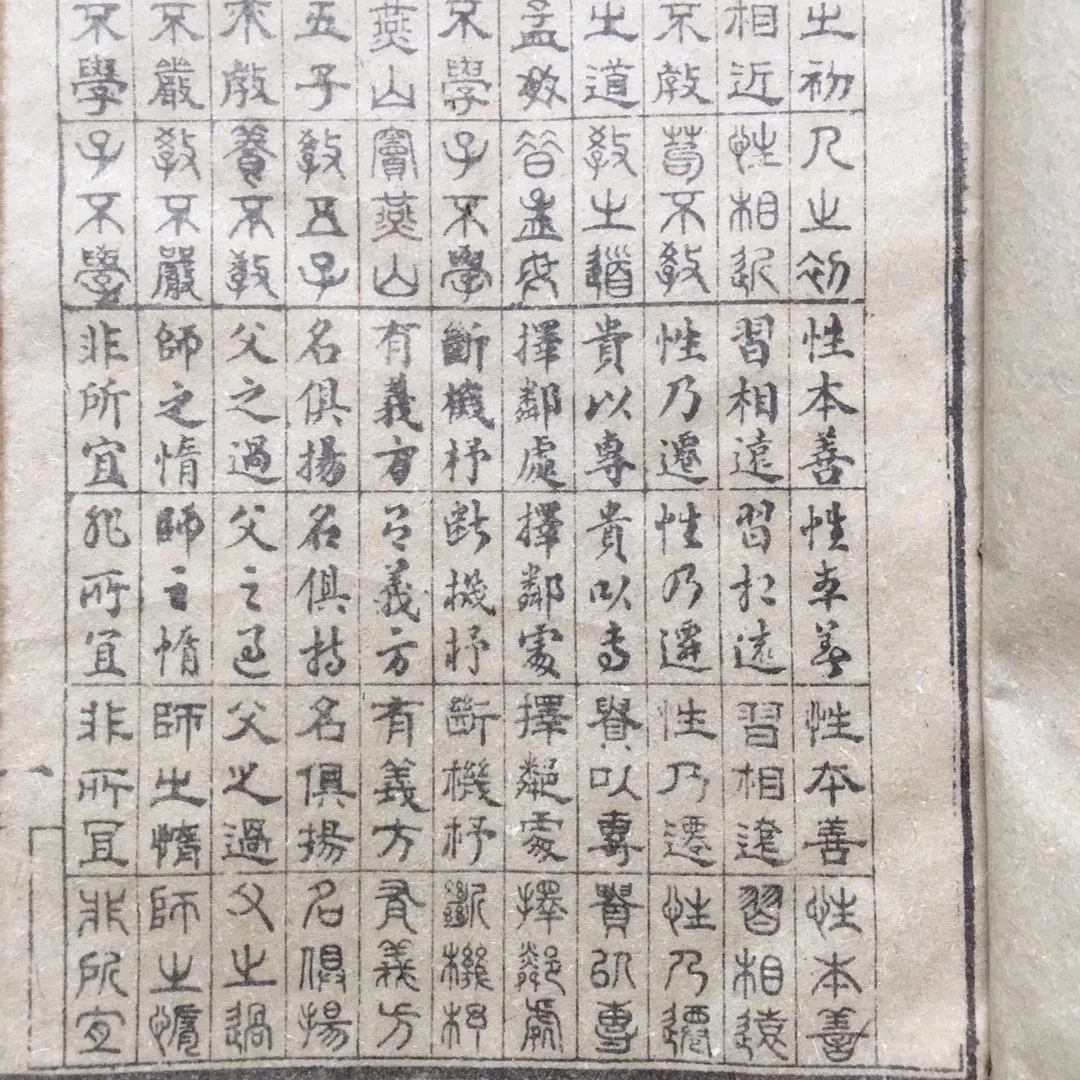 之初 人之初 性本善 性本善 性本善 性本善
相近 性相近 習相遠 習相遠 習相遠 習相遠
不教 苟不教 性乃遷 性乃遷 性乃遷 性乃遷
之道 教之道 貴以專 貴以專 貴以專 貴以專
孟母 昔孟母 擇鄰處 擇鄰處 擇鄰處 擇鄰處
不學 子不學 斷機杼 斷機杼 斷機杼 斷機杼
燕山 竇燕山 有義方 有義方 有義方 有義方
五子 教五子 名俱揚 名俱揚 名俱揚 名俱揚
不教 養不教 父之過 父之過 父之過 父之過
不嚴 教不嚴 師之惰 師之惰 師之惰 師之惰
不學 子不學 非所宜 非所宜 非所宜 非所宜